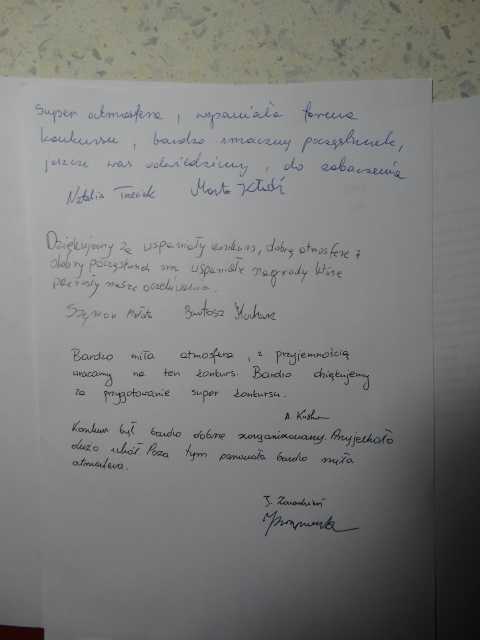 Super atmosfera, wspaniała forma
konkursu, bardzo smaczny poczęstunek,
jeszcze was odwiedzimy, do zobaczenia
Natalia Marta
Dziękujemy za wspaniały konkurs, dobrą atmosferę i
dobry poczęstunek oraz wspaniałe nagrody które
przerosły nasze oczekiwania.
Szymon Bartosz
Bardzo miła atmosfera, z przyjemnością
wracamy na ten konkurs. Bardzo dziękujemy
za przygotowanie super konkursu.
A.
Konkurs był bardzo dobrze zorganizowany. Przyjechało
dużo szkół. Poza tym panowała bardzo miła
atmosfera.